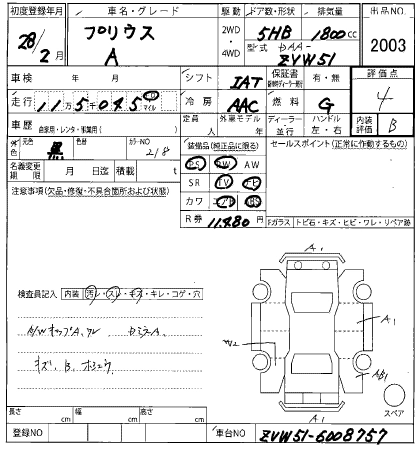 初度登録年月 車名・グレード 駆動 ドア数・形状 排気量 出品NO
28/2月 プリウス A 2WD・4WD 5HB 1800cc 2003
型式 DAA-ZVW51
車検 年 月 シフト IAT 保証書 有・無 評価点 4
走行 11万5千045 キロ マイル 冷房 AAC 燃料 G
車歴 自家用・レンタ・事業用( ) 定員 人 外車モデル 年 ディーラー・並行 ハンドル 左・右 内装評価 B
外色 元色 黒 色替 カラーNO 218 装備品(純正品に限る) セールスポイント(正常に作動するもの)
PS PW AW
名義変更期限 月 日迄 積載 t SR TV ナビ
注意事項(欠品・修復・不具合箇所および状態) カワ エアB ABS
R券 11480円 Fガラス トビ石・キズ・ヒビ・ワレ・リペア跡
A1
検査員記入 内装 汚レ・スレ・キズ・キレ・コゲ・穴
A1
A/WキャップA、ワレ
W2
キズ、B、
AB1
スペア
A1
長さ cm 幅 cm 高さ cm
登録NO 車台NO ZVW51-6008757